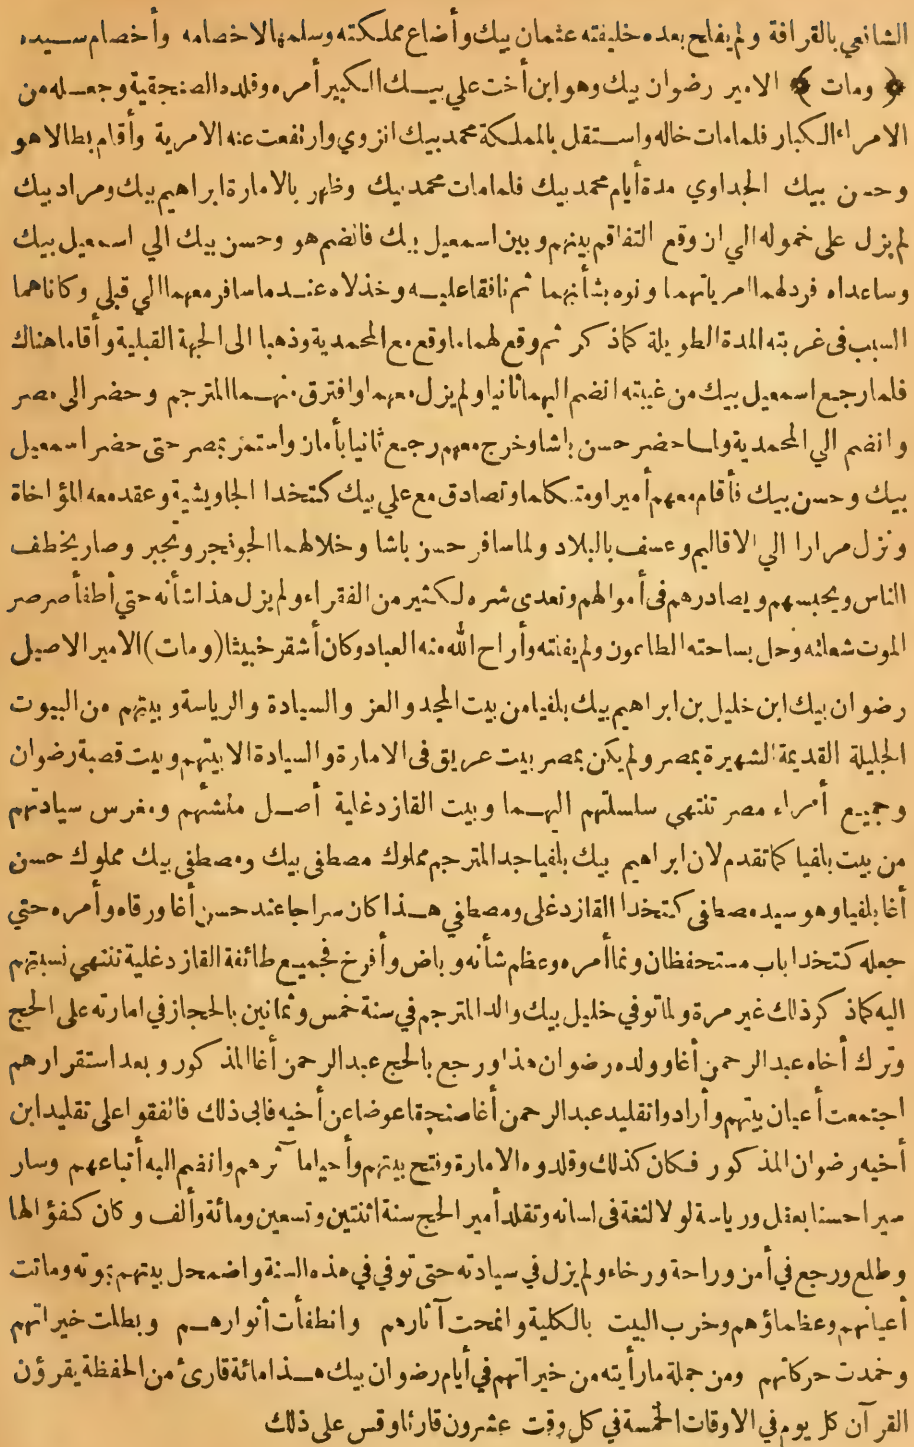 الشافعي بالقرافة ولم يفلح بعده خليفته عثمان بيك وأضاع مملكته وسلمها لاخصامه وأخصام سيده
﴿ ومات ﴾ الامير رضوان بيك وهو ابن أخت علي بيك الكبير أمره وقلده الصنجقية وجعله من
الامراء الكبار فلما مات خاله واستقل بالمملكة محمد بيك انزوي وارتفعت عنه الامرية وأقام بطالا هو
وحسن بيك الجداوي مدة أيام محمد بيك فلما مات محمد بيك وظهر بالامارة ابراهيم بيك ومراد بيك
لم يزل على خموله الي ان وقع التفاقم بينهم وبين اسمعيل بيك فانضم هو وحسن بيك الي اسمعيل بيك
وساعداه فرد لهما امرياتهما ونوه بشأنهما ثم نافقا عليه وخذلاه عند ما سافر معهما الي قبلي وكانا هما
السبب فى غربته المدة الطويلة كما ذكر ثم وقع لهما ما وقع مع المحمدية وذهبا الى الجهة القبلية وأقاما هناك
فلما رجع اسمعيل بيك من غيبته انضم اليهما ثانيا ولم يزل معهما وافترق منهما المترجم وحضر الى مصر
وانضم الي المحمدية ولما حضر حسن باشا وخرج معهم رجع ثانيا بأمان واستمر بمصر حتى حضر اسمعيل
بيك وحسن بيك فأقام معهم أميرا ومتكلما وتصادق مع علي بيك كتخدا الجاويشية وعقد معه المؤاخاة
ونزل مرارا الي الاقاليم وعسف بالبلاد ولما سافر حسن باشا وخلا لهما الجو تجبر وتجبر وصار يخطف
الناس ويحبسهم ويصادرهم فى أموالهم وتعدى شره لكثير من الفقراء ولم يزل هذا شأنه حتي أطفأ صرصر
الموت شعلته وحل بساحته الطاعون ولم يفلته وأراح الله منه العباد وكان أشقر خبيثا (ومات) الامير الاصيل
رضوان بيك ابن خليل بن ابراهيم بيك بلفيا من بيت المجد والعز والسيادة والرياسة وبيتهم من البيوت
الجليلة القديمة الشهيرة بمصر ولم يكن بمصر بيت عريق فى الامارة والسيادة الا بيتهم وبيت قصبة رضوان
وجميع أمراء مصر تنتهي سلسلتهم اليهما وبيت القازدغلية أصل منشئهم ومغرس سيادتهم
من بيت بلفيا كما تقدم لان ابراهيم بيك بلفيا جد المترجم مملوك مصطفى بيك ومصطفى بيك مملوك حسن
أغا بلفيا وهو سيد مصطفى كتخدا القازدغلى ومصطفي هذا كان سراجا عند حسن أغا ورقاه وأمره حتي
جعله كتخدا باب مستحفظان ونما أمره وعظم شأنه وباض وأفرخ فجميع طائفة القازدغلية تنتهي نسبتهم
اليه كما ذكر ذلك غير مرة ولما توفي خليل بيك والد المترجم في سنة خمس وثمانين بالحجاز في امارته على الحج
وترك أخاه عبد الرحمن أغا وولده رضوان هذا ورجع بالحج عبد الرحمن أغا المذكور وبعد استقرارهم
اجتمعت أعيان بيتهم وأرادوا تقليد عبد الرحمن أغا صنجقا عوضا عن أخيه فابى ذلك فاتفقوا على تقليد ابن
أخيه رضوان المذكور فكان كذلك وقلدوه الامارة وفتح بيتهم وأحيا مآثرهم وانضم اليه أتباعهم وسار
سيرا حسنا بعقل ورياسة لولا لثغة فى لسانه وتقلد أمير الحج سنة اثنتين وتسعين ومائة وألف وكان كفؤا لها
وطلع ورجع في أمن وراحة ورخاء ولم يزل في سيادته حتى توفي في هذه السنة واضمحل بيتهم بموته وماتت
أعيانهم وعظماؤهم وخرب البيت بالكلية وانمحت آثارهم وانطفأت أنوارهم وبطلت خيراتهم
وخمدت حركاتهم ومن جملة ما رأيته من خيراتهم في أيام رضوان بيك هذا مائة قارئ من الحفظة يقرؤن
القرآن كل يوم في الاوقات الخمسة في كل وقت عشرون قارئا وقس على ذلك